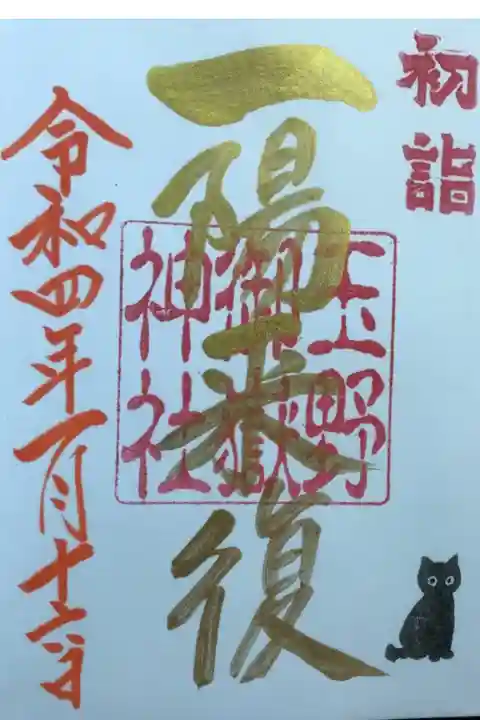 初詣
一陽来復
玉野
御嶽
神社
令和四年一月十六日